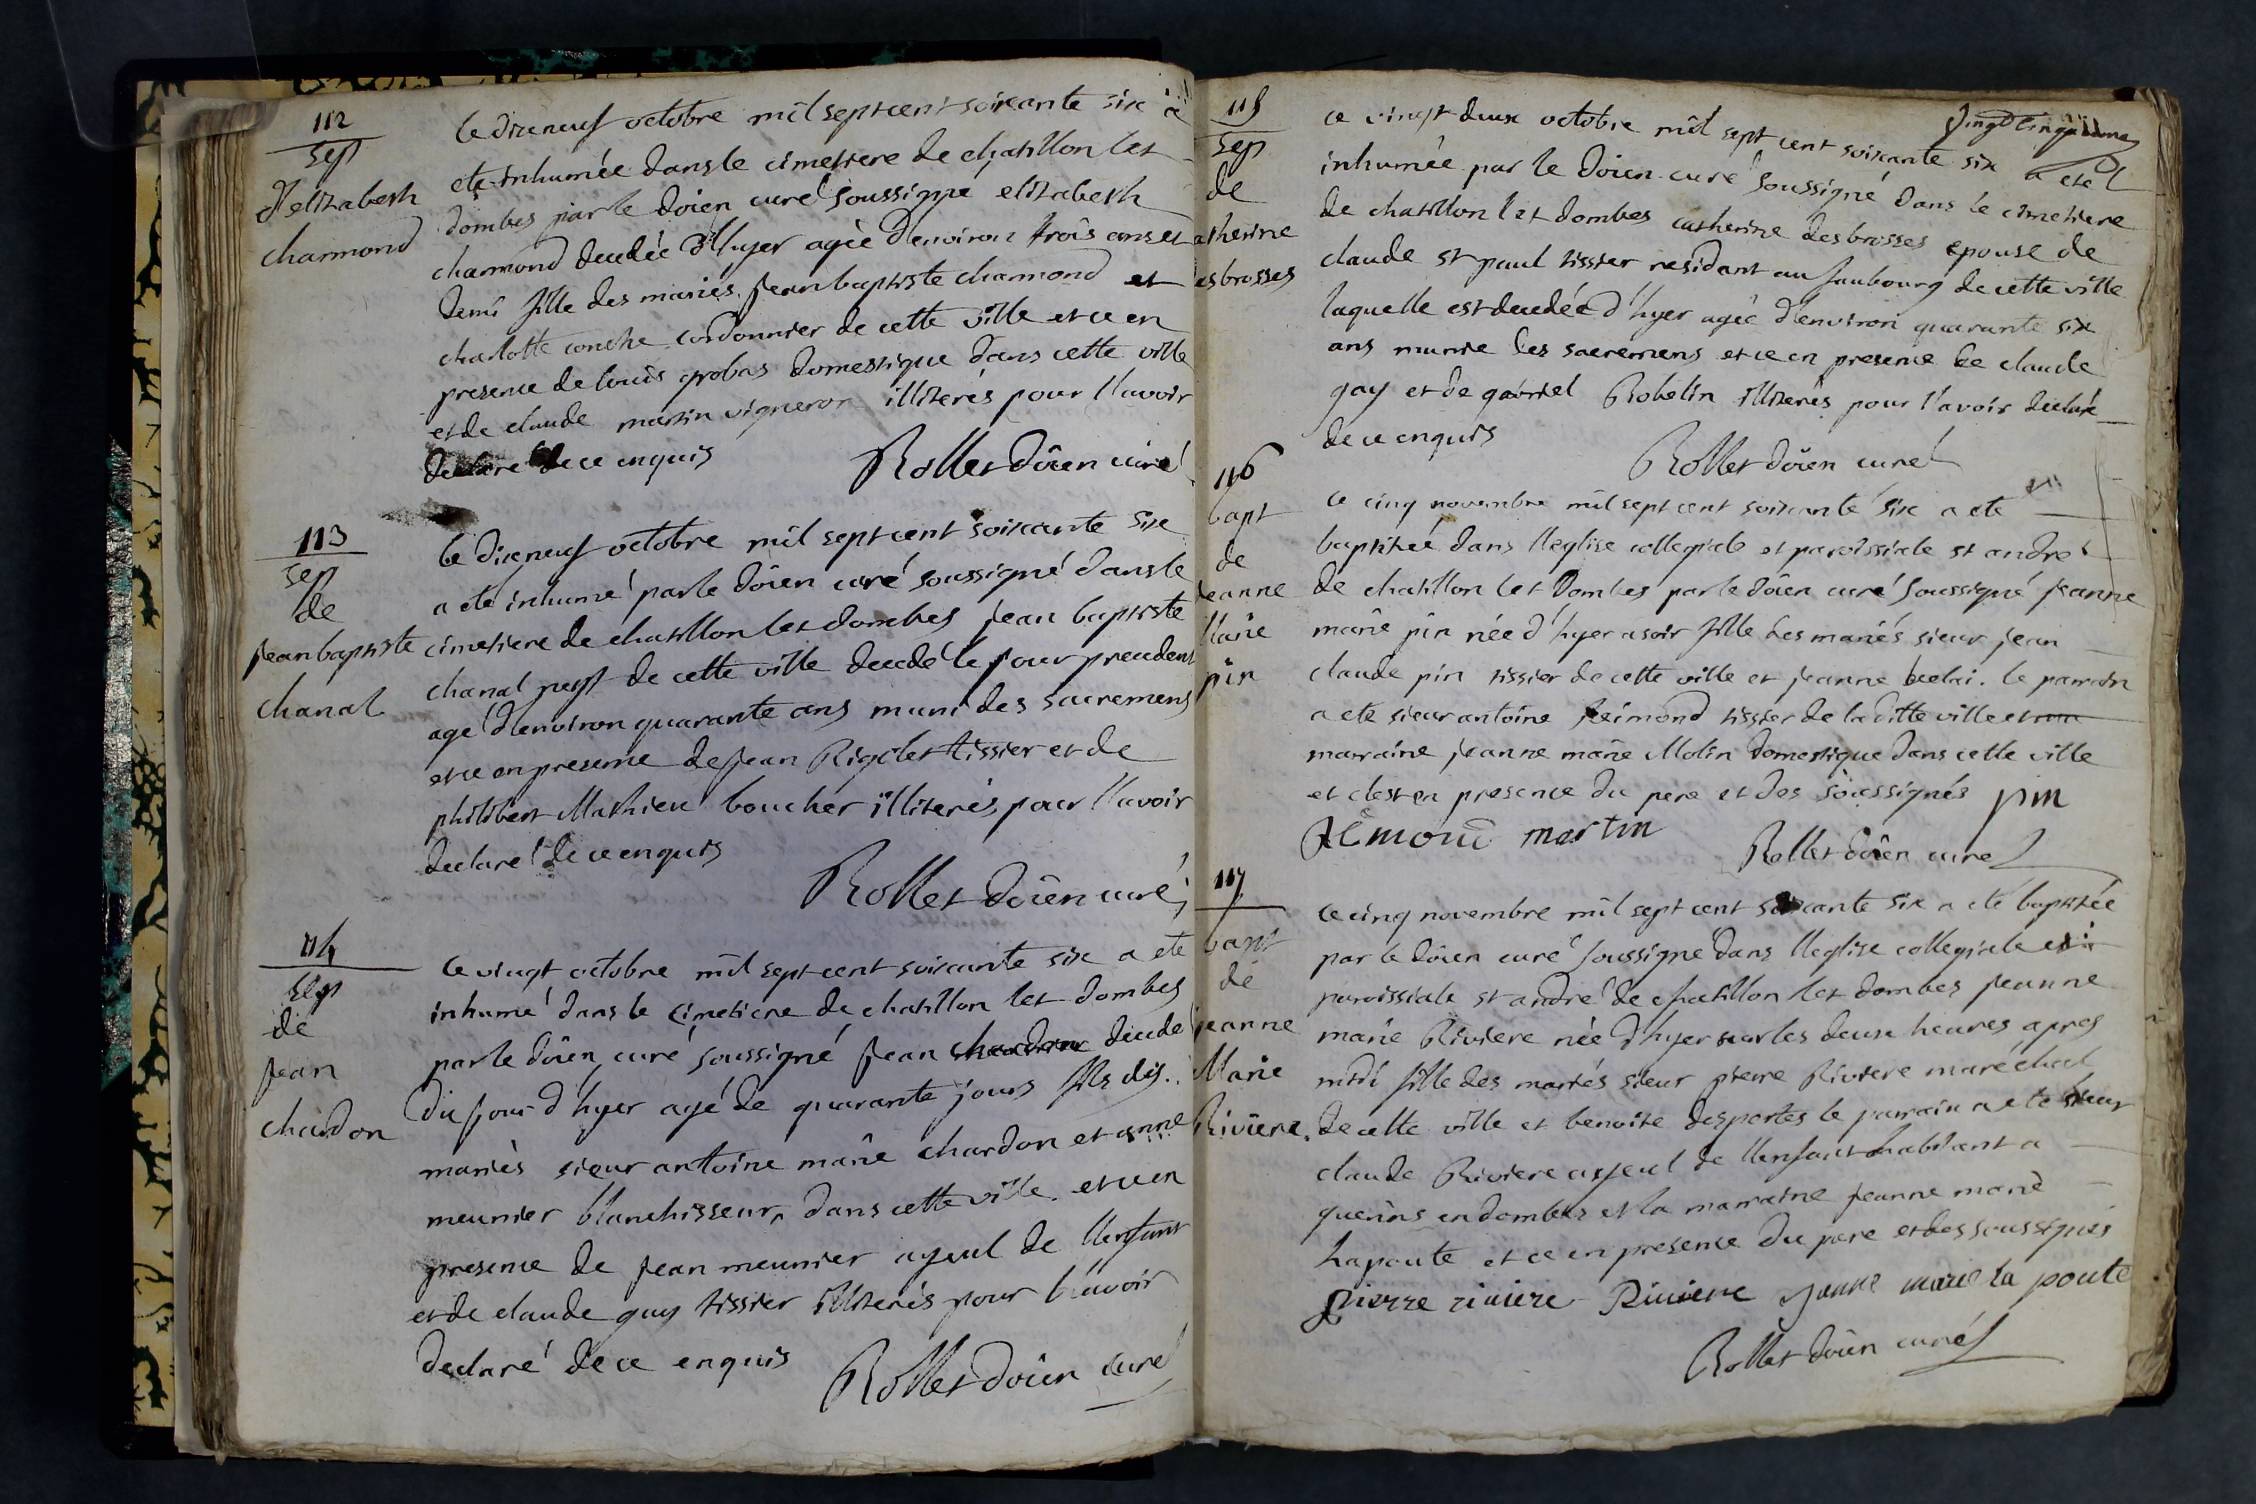 112
sep
d'elizabeth
charmond
le dixneuf octobre mil sept cent soixante six a
ete inhumée dans le cimetiere de chatillon lez
dombes par le doïen curé soussigné elizabeth
charmond decedée d'hyer agée d'environ trois ans et
demi fille des mariés jean baptiste charmond et
charlotte conche cordonnier de cette ville et ce en
presence de louis grobas domestique dans cette ville
et de claude martin vigneron illiterés pour l'avoir
declaré de ce enquis
Rollet doïen curé
113
sep
de
jean baptiste
chanal
le dixneuf octobre mil sept cent soixante six
a ete inhumé par le doïen curé soussigné dans le
cimetiere de chatillon lez dombes jean baptiste
chanal de cette ville decedé le jour precedent
agé d'environ quarante ans muni des sacremens
et ce en presence de jean Rigolet tissier et de
philibert Mathieu boucher illiterés pour l'avoir
declaré de ce enquis
Rollet doïen curé
114
sep
de
jean
chardon
le vingt octobre mil sept cent soixante six a ete
inhumé dans le cimetiere de chatillon lez dombes
par le doïen curé soussigné jean chardon decedé
du jour d'hyer agé de quarante jours fils des
mariés sieur antoine marie chardon et anne
meunier blanchisseur dans cette ville et ce en
presence de jean meunier ayeul de l'enfant
et de claude guy tissier illiterés pour l'avoir
declaré de ce enquis
Rollet doïen curé
115
sep
de
atherine
esbrosses
le vingt deux octobre mil sept cent soixante six a ete
inhumée par le doïen curé soussigné dans le cimetiere
de chatillon lez dombes catherine desbrosses epouse de
claude st paul tissier residant au faubourg de cette ville
laquelle est decedée d'hyer agée d'environ quarante six
ans munie des sacremens et ce en presence de claude
gay et de gabriel Robelin illiterés pour l'avoir declaré
de ce enquis
Rollet doïen curé
116
bapt
de
jeanne
Marie
pin
le cinq novembre mil sept cent soixante six a ete
baptisée dans l'eglise collegiale et paroissiale st andré
de chatillon lez Dombes par le doïen curé soussigné jeanne
marie pin née d'hyer a soir fille des mariés sieur jean
claude pin tissier de cette ville et jeanne belai. le parrain
a ete sieur antoine Reimond tissier de laditte ville et
marraine jeanne marie Molin domestique dans cette ville
et c'est en presence du pere et des soussignés pin
Rémond martin
Rollet doïen curé
117
bapt
de
jeanne
Marie
Riviere
le cinq novembre mil sept cent soixante six a eté baptisée
par le doïen curé soussigné dans l'eglise collegiale et
paroissiale st andré de chatillon lez dombes jeanne
marie Riviere née d'hyer sur les deux heures apres
midi fille des mariés sieur pierre Riviere maréchal
de cette ville et benoite desportes le parrain a ete sieur
claude Riviere ayeul de l'enfant habitant a
guerins en dombes et la marraine jeanne marie
lapoute et ce en presence du pere et des soussignés
pierre riviere Riviere janne marie la poute
Rollet doïen curé